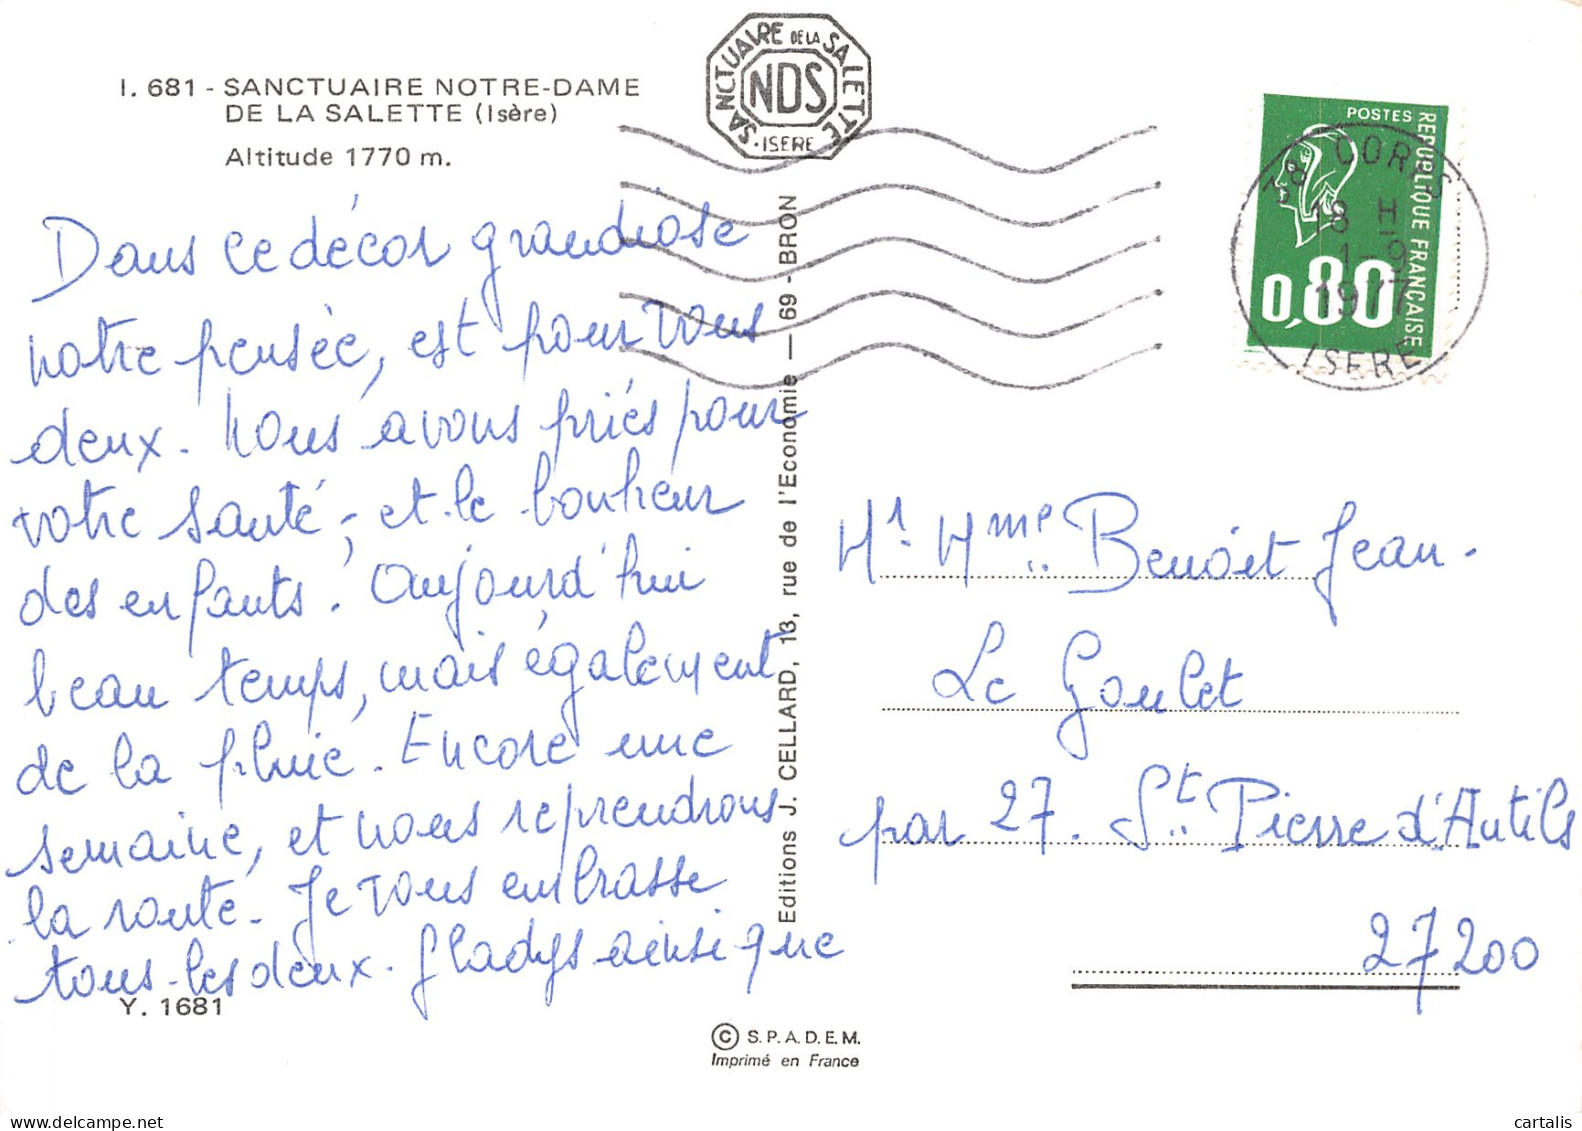 I. 681 - SANCTUAIRE NOTRE-DAME
DE LA SALETTE (Isère)
Altitude 1770 m.
SANCTUAIRE DE LA SALETTE
NDS
·ISERE·
POSTES
REPUBLIQUE FRANÇAISE
0,80
38 CORPS
18 H
1-9
1977
ISERE
Dans ce décor grandiose
notre pensée, est pour vous
deux. Nous avons priés pour
votre santé, et le bonheur
des enfants! Aujourd'hui
beau temps, mais également
de la pluie. Encore une
semaine, et nous reprendrons
la route. Je vous embrasse
tous les deux. Gladys ainsi que
Y. 1681
Editions J. CELLARD, 13, rue de l'Economie — 69 - BRON
Mr. Mme.. Benoit Jean.
Le Goulet
par 27. St.. Pierre d'Autils
27200
© S.P.A.D.E.M.
Imprimé en France
cartalis
www.delcampe.net